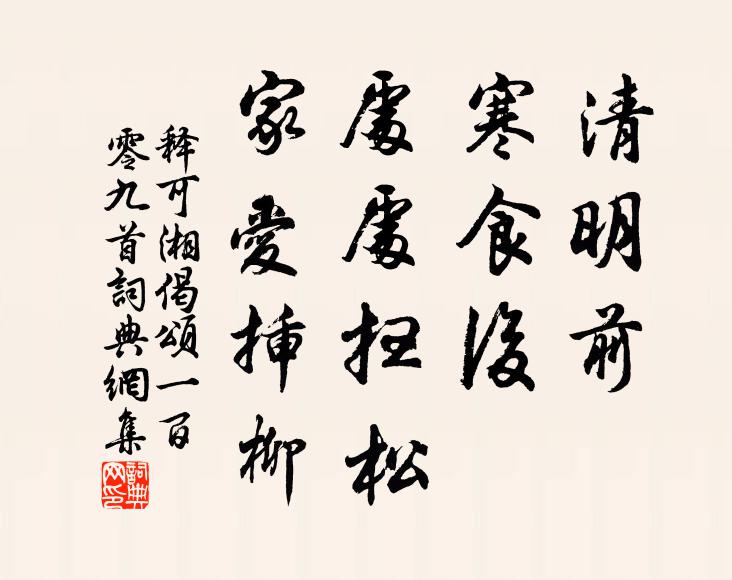 清明前
寒食後
處處扫松
家愛挿柳
释可湘偈頌一百
零九首詞典網集
詞典
网印